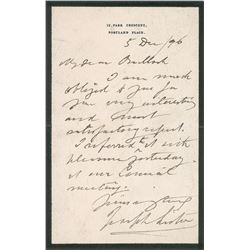 12, PARK CRESCENT,
PORTLAND PLACE.
5 Dec /96
My dear Bullock
I am much
obliged to you for
your very interesting
and most
satisfactory report.
I referred to it with
pleasure yesterday
at our Council
meeting.
Yours sincerely
Joseph Lister